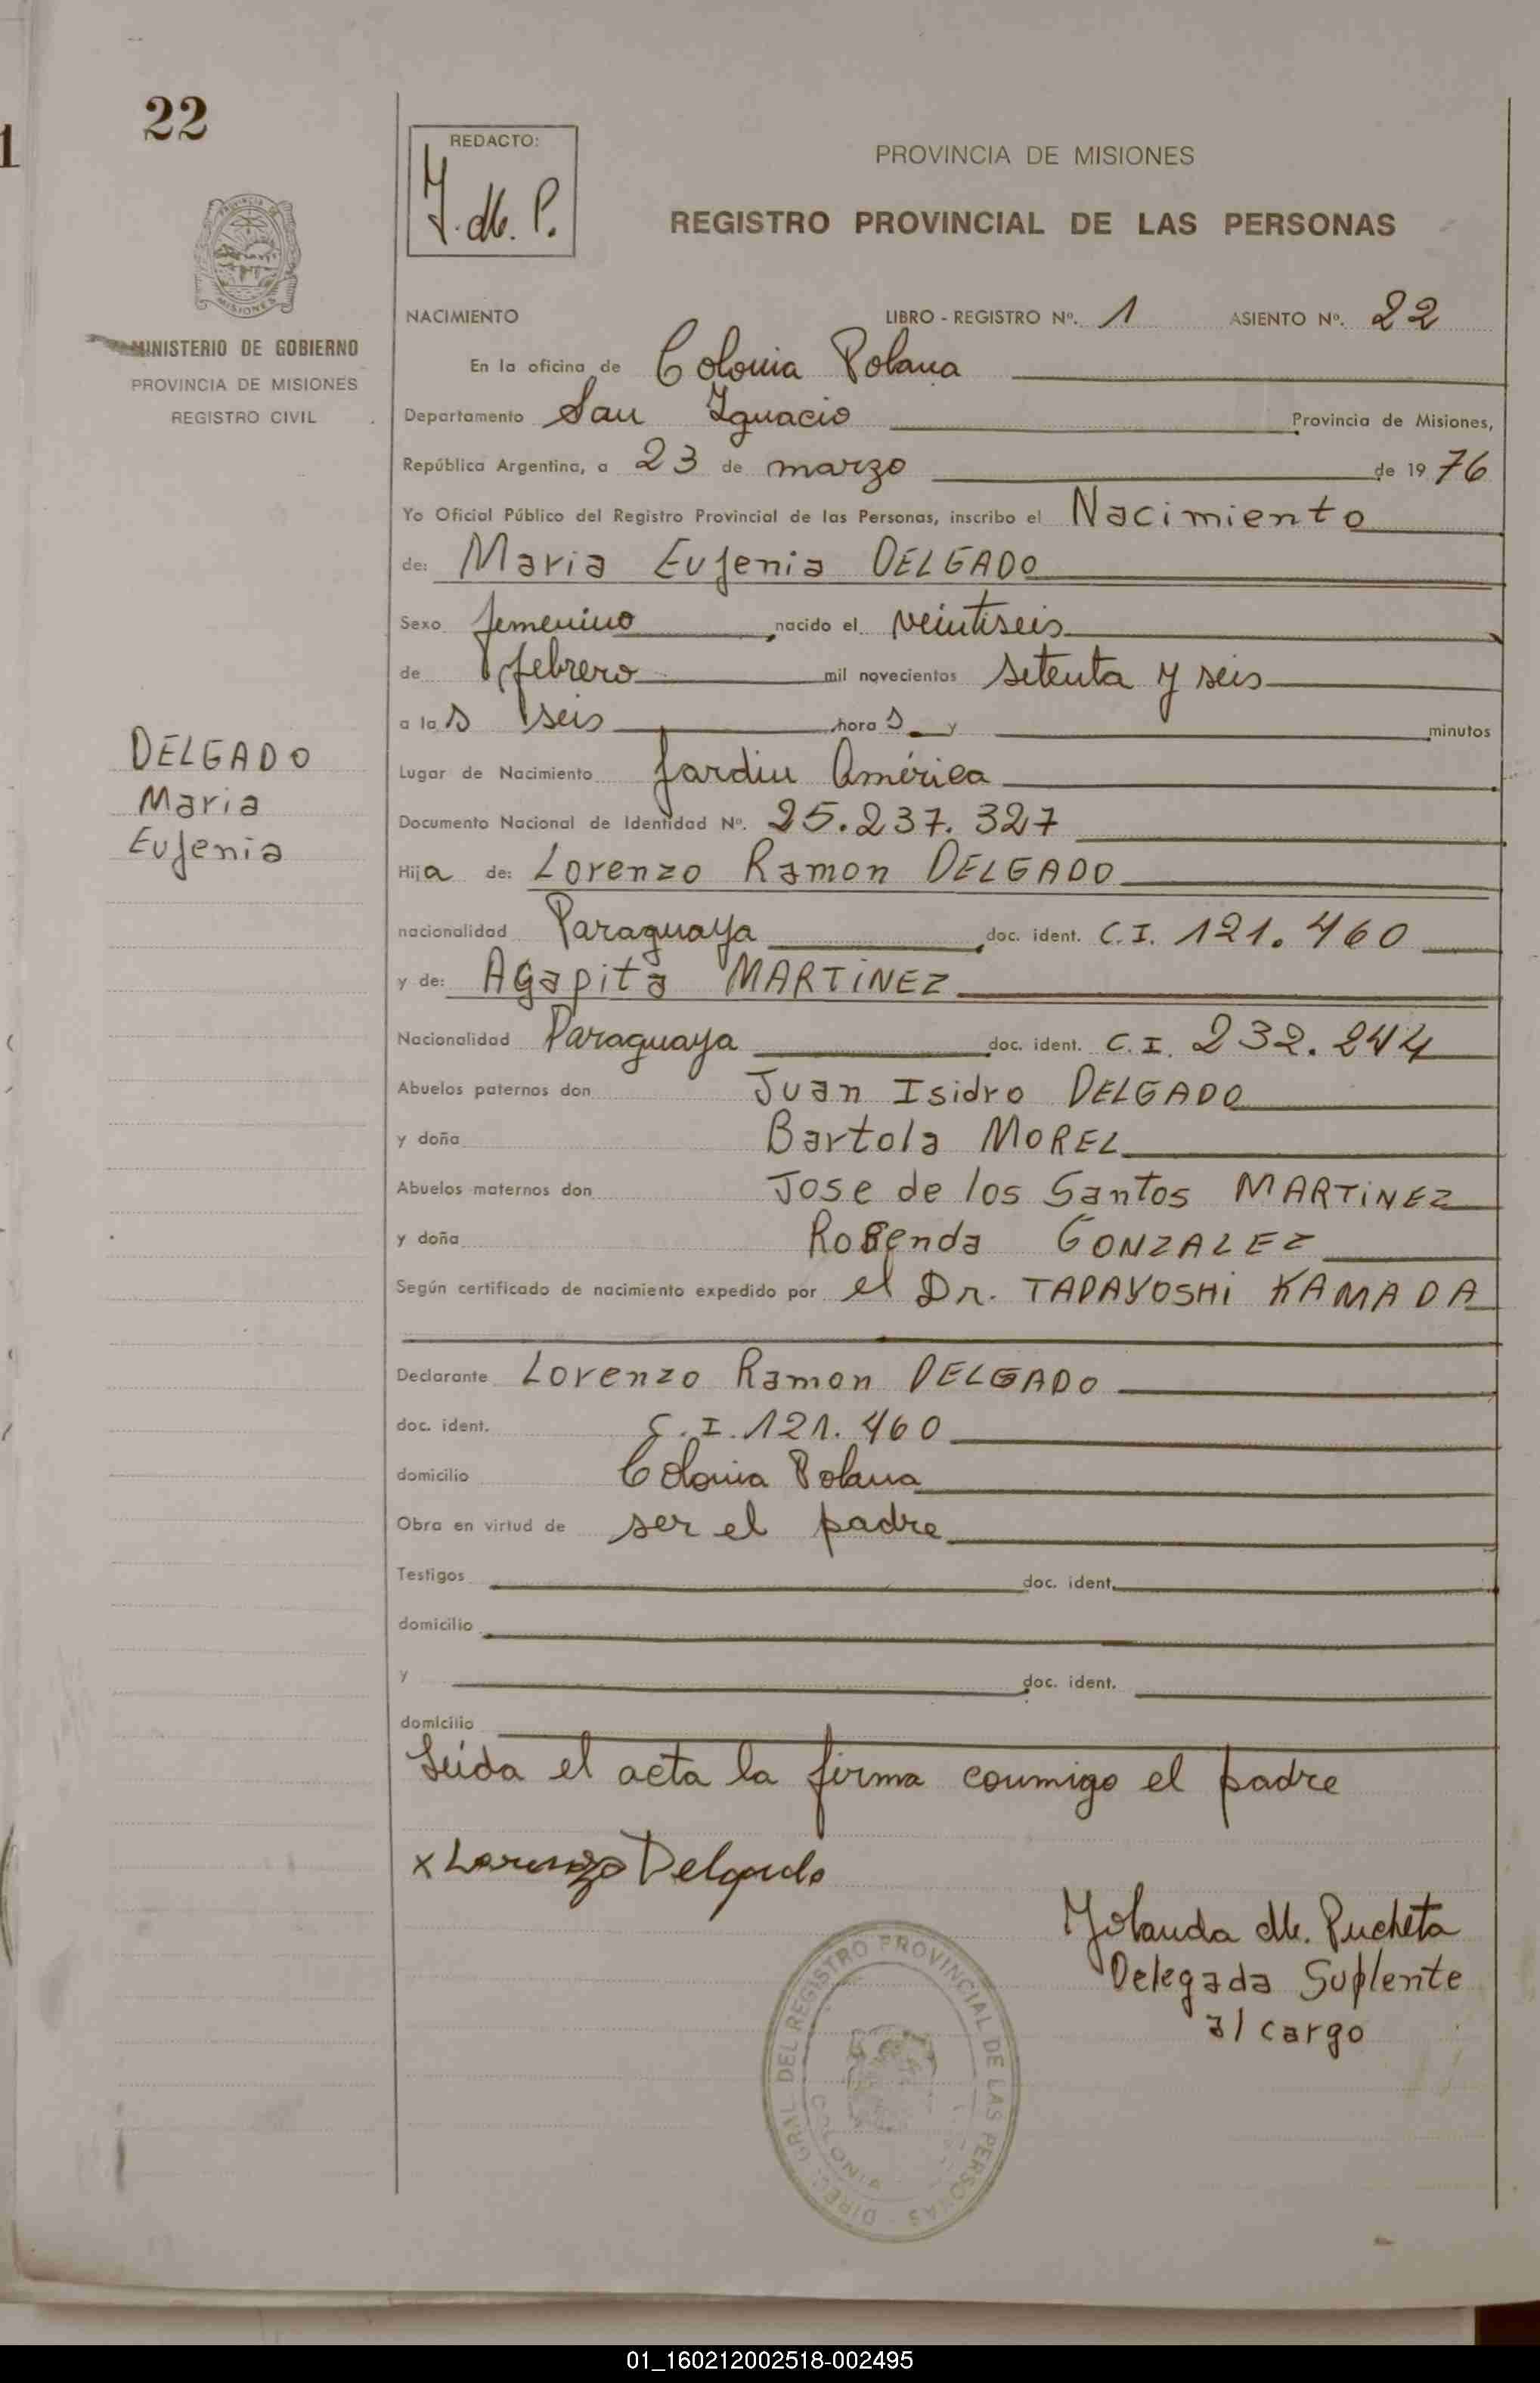 22
1
REDACTO:
Y. M. P.
PROVINCIA DE MISIONES
REGISTRO PROVINCIAL DE LAS PERSONAS
MISIONES
MINISTERIO DE GOBIERNO
PROVINCIA DE MISIONES
REGISTRO CIVIL
NACIMIENTO LIBRO - REGISTRO Nº. 1 ASIENTO Nº. 22
En la oficina de Colonia Polana
Departamento San Ignacio Provincia de Misiones,
República Argentina, a 23 de marzo de 1976
Yo Oficial Público del Registro Provincial de las Personas, inscribo el Nacimiento
de: Maria Eugenia DELGADO
Sexo femenino nacido el veintiseis
de febrero mil novecientos setenta y seis
a las seis horas y minutos
Lugar de Nacimiento Jardin América
Documento Nacional de Identidad Nº. 25.237.327
Hija de: Lorenzo Ramon DELGADO
nacionalidad Paraguaya doc. ident. C.I. 121.460
y de: Agapita MARTINEZ
Nacionalidad Paraguaya doc. ident. C.I. 232.244
Abuelos paternos don Juan Isidro DELGADO
y doña Bartola MOREL
Abuelos maternos don Jose de los Santos MARTINEZ
y doña Rosenda GONZALEZ
Según certificado de nacimiento expedido por el Dr. TADAYOSHI KAMADA
Declarante Lorenzo Ramon DELGADO
doc. ident. C.I. 121.460
domicilio Colonia Polana
Obra en virtud de ser el padre
Testigos doc. ident.
domicilio
y doc. ident.
domicilio
Leida el acta la firma conmigo el padre
x Lorenzo Delgado
Yolanda M. Pucheta
Delegada Suplente
al cargo
DELGADO
Maria
Eugenia
DIREC. GRAL. DEL REGISTRO PROVINCIAL DE LAS PERSONAS
COLONIA
01_160212002518-002495